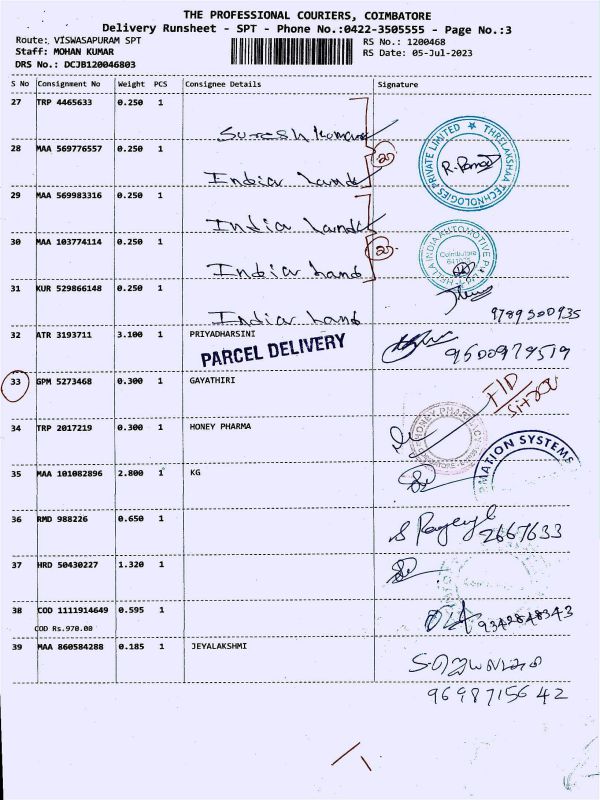 THE PROFESSIONAL COURIERS, COIMBATORE
Delivery Runsheet - SPT - Phone No.:0422-3505555 - Page No.:3
Route: VISWASAPURAM SPT
RS No.: 1200468
Staff: MOHAN KUMAR
RS Date: 05-Jul-2023
DRS No.: DCJB120046803
S No Consignment No Weight PCS Consignee Details Signature
27 TRP 4465633 0.250 1
Suresh Kumar
28 MAA 569776557 0.250 1
2
THRELAKSHAA TECHNOLOGIES PRIVATE LIMITED
India Land
29 MAA 569983316 0.250 1
India Land
30 MAA 103774114 0.250 1
2
Coimbatore
India Land
31 KUR 529866148 0.250 1
India Land
9789500935
32 ATR 3193711 3.100 1 PRIYADHARSINI
PARCEL DELIVERY
9500979519
33 GPM 5273468 0.300 1 GAYATHIRI
34 TRP 2017219 0.300 1 HONEY PHARMA
HONEY PHARMACY
MATION SYSTEMS
35 MAA 101082896 2.800 1 KG
36 RMD 988226 0.650 1
2667633
37 HRD 50430227 1.320 1
38 COD 1111914649 0.595 1
9342848343
COD Rs.970.00
39 MAA 860584288 0.185 1 JEYALAKSHMI
9698715642